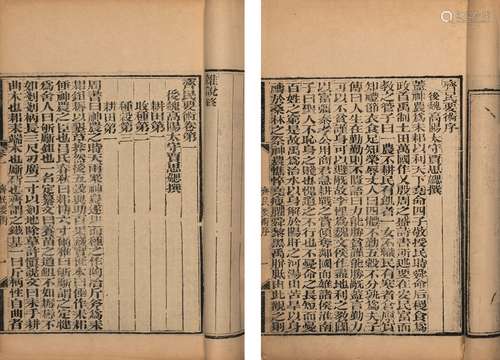 齊民要術序
後魏高陽太守賈思勰撰
蓋神農為耒耜以利天下堯命四子敬授民時舜命后稷食為
政首禹制土田萬國作乂殷周之盛詩書所述要在安民富而
教之管子曰一農不耕民有飢者一女不織民有寒者倉廩實
知禮節衣食足知榮辱丈人曰四體不勤五穀不分孰為夫子
傳曰人生在勤勤則不匱語曰力能勝貧謹能勝禍蓋言勤力
可以不貧謹身可以避禍故李悝為魏文侯作盡地利之教國
以富強秦孝公用商君急耕戰之賞傾奪鄰國而雄諸侯淮南
子曰聖人不恥身之賤也愧道之不行也不憂命之長短而憂
百姓之窮是故禹為治水以身解於陽盱之河湯由苦旱以身
禱於桑林之祭神農憔悴堯瘦癯舜黎黑禹胼胝由此觀之則
雜說終
齊民要術卷第一
後魏高陽太守賈思勰撰
耕田第一
收種第二
種穀第三
耕田第一
周書曰神農之時天雨粟神農遂耕而種之作陶冶斤斧為耒
耜鋤耨以墾草莽然後五穀興助百果藏實世本曰倕作耒耜
倕神農之臣也呂氏春秋曰耜博六寸爾雅曰斪斸謂之定犍
為舍人曰斪斸鋤也一名定纂文曰養苗之道鋤不如耨耨不
如剗剗柄長二尺刃廣二寸以剗地除草許慎說文曰耒手耕
曲木也耜耒端木也斸斫也齊謂之鎡基一曰斤柄性自曲者